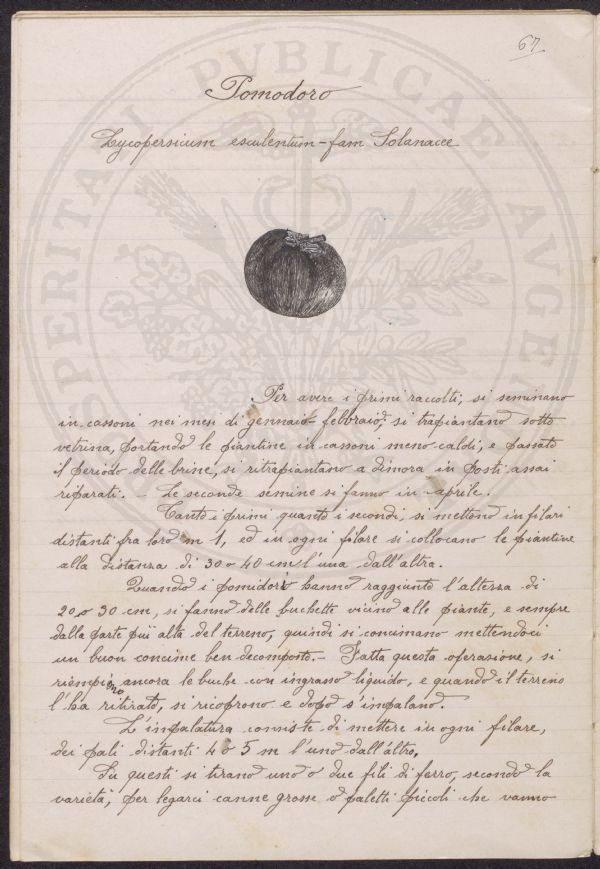 67
Pomodoro
Lycopersicum esculentum - fam Solanacee
Per avere i primi raccolti, si seminano
in cassoni nei mesi di gennaio-febbraio, si trapiantano sotto
vetrina, portando le piantine in cassoni meno caldi, e passato
il periodo delle brine, si ritrapiantano a dimora in posti assai
riparati. - Le seconde semine si fanno in aprile.
Tanto i primi quanto i secondi, si mettono in filari
distanti fra loro m 1, ed in ogni filare si collocano le piantine
alla distanza di 30 o 40 cm l'una dall'altra.
Quando i pomidori hanno raggiunto l'altezza di
20 o 30 cm, si fanno delle buchette vicino alle piante, e sempre
dalla parte più alta del terreno, quindi si concimano mettendoci
un buon concime ben decomposto. - Fatta questa operazione, si
riempiono ancora le buche con ingrasso liquido, e quando il terreno
l'ha ritirato, si ricoprono e dopo s'impalano.
L'impalatura consiste di mettere in ogni filare,
dei pali distanti 4 o 5 m l'uno dall'altro.
Su questi si tirano uno o due fili di ferro, secondo la
varietà, per legarci canne grosse o paletti piccoli che vanno
PUBLICAE
PROSPERITATI
AUGE